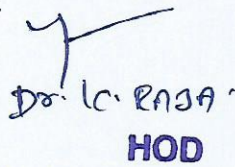 Dr. K. RAJA
HOD